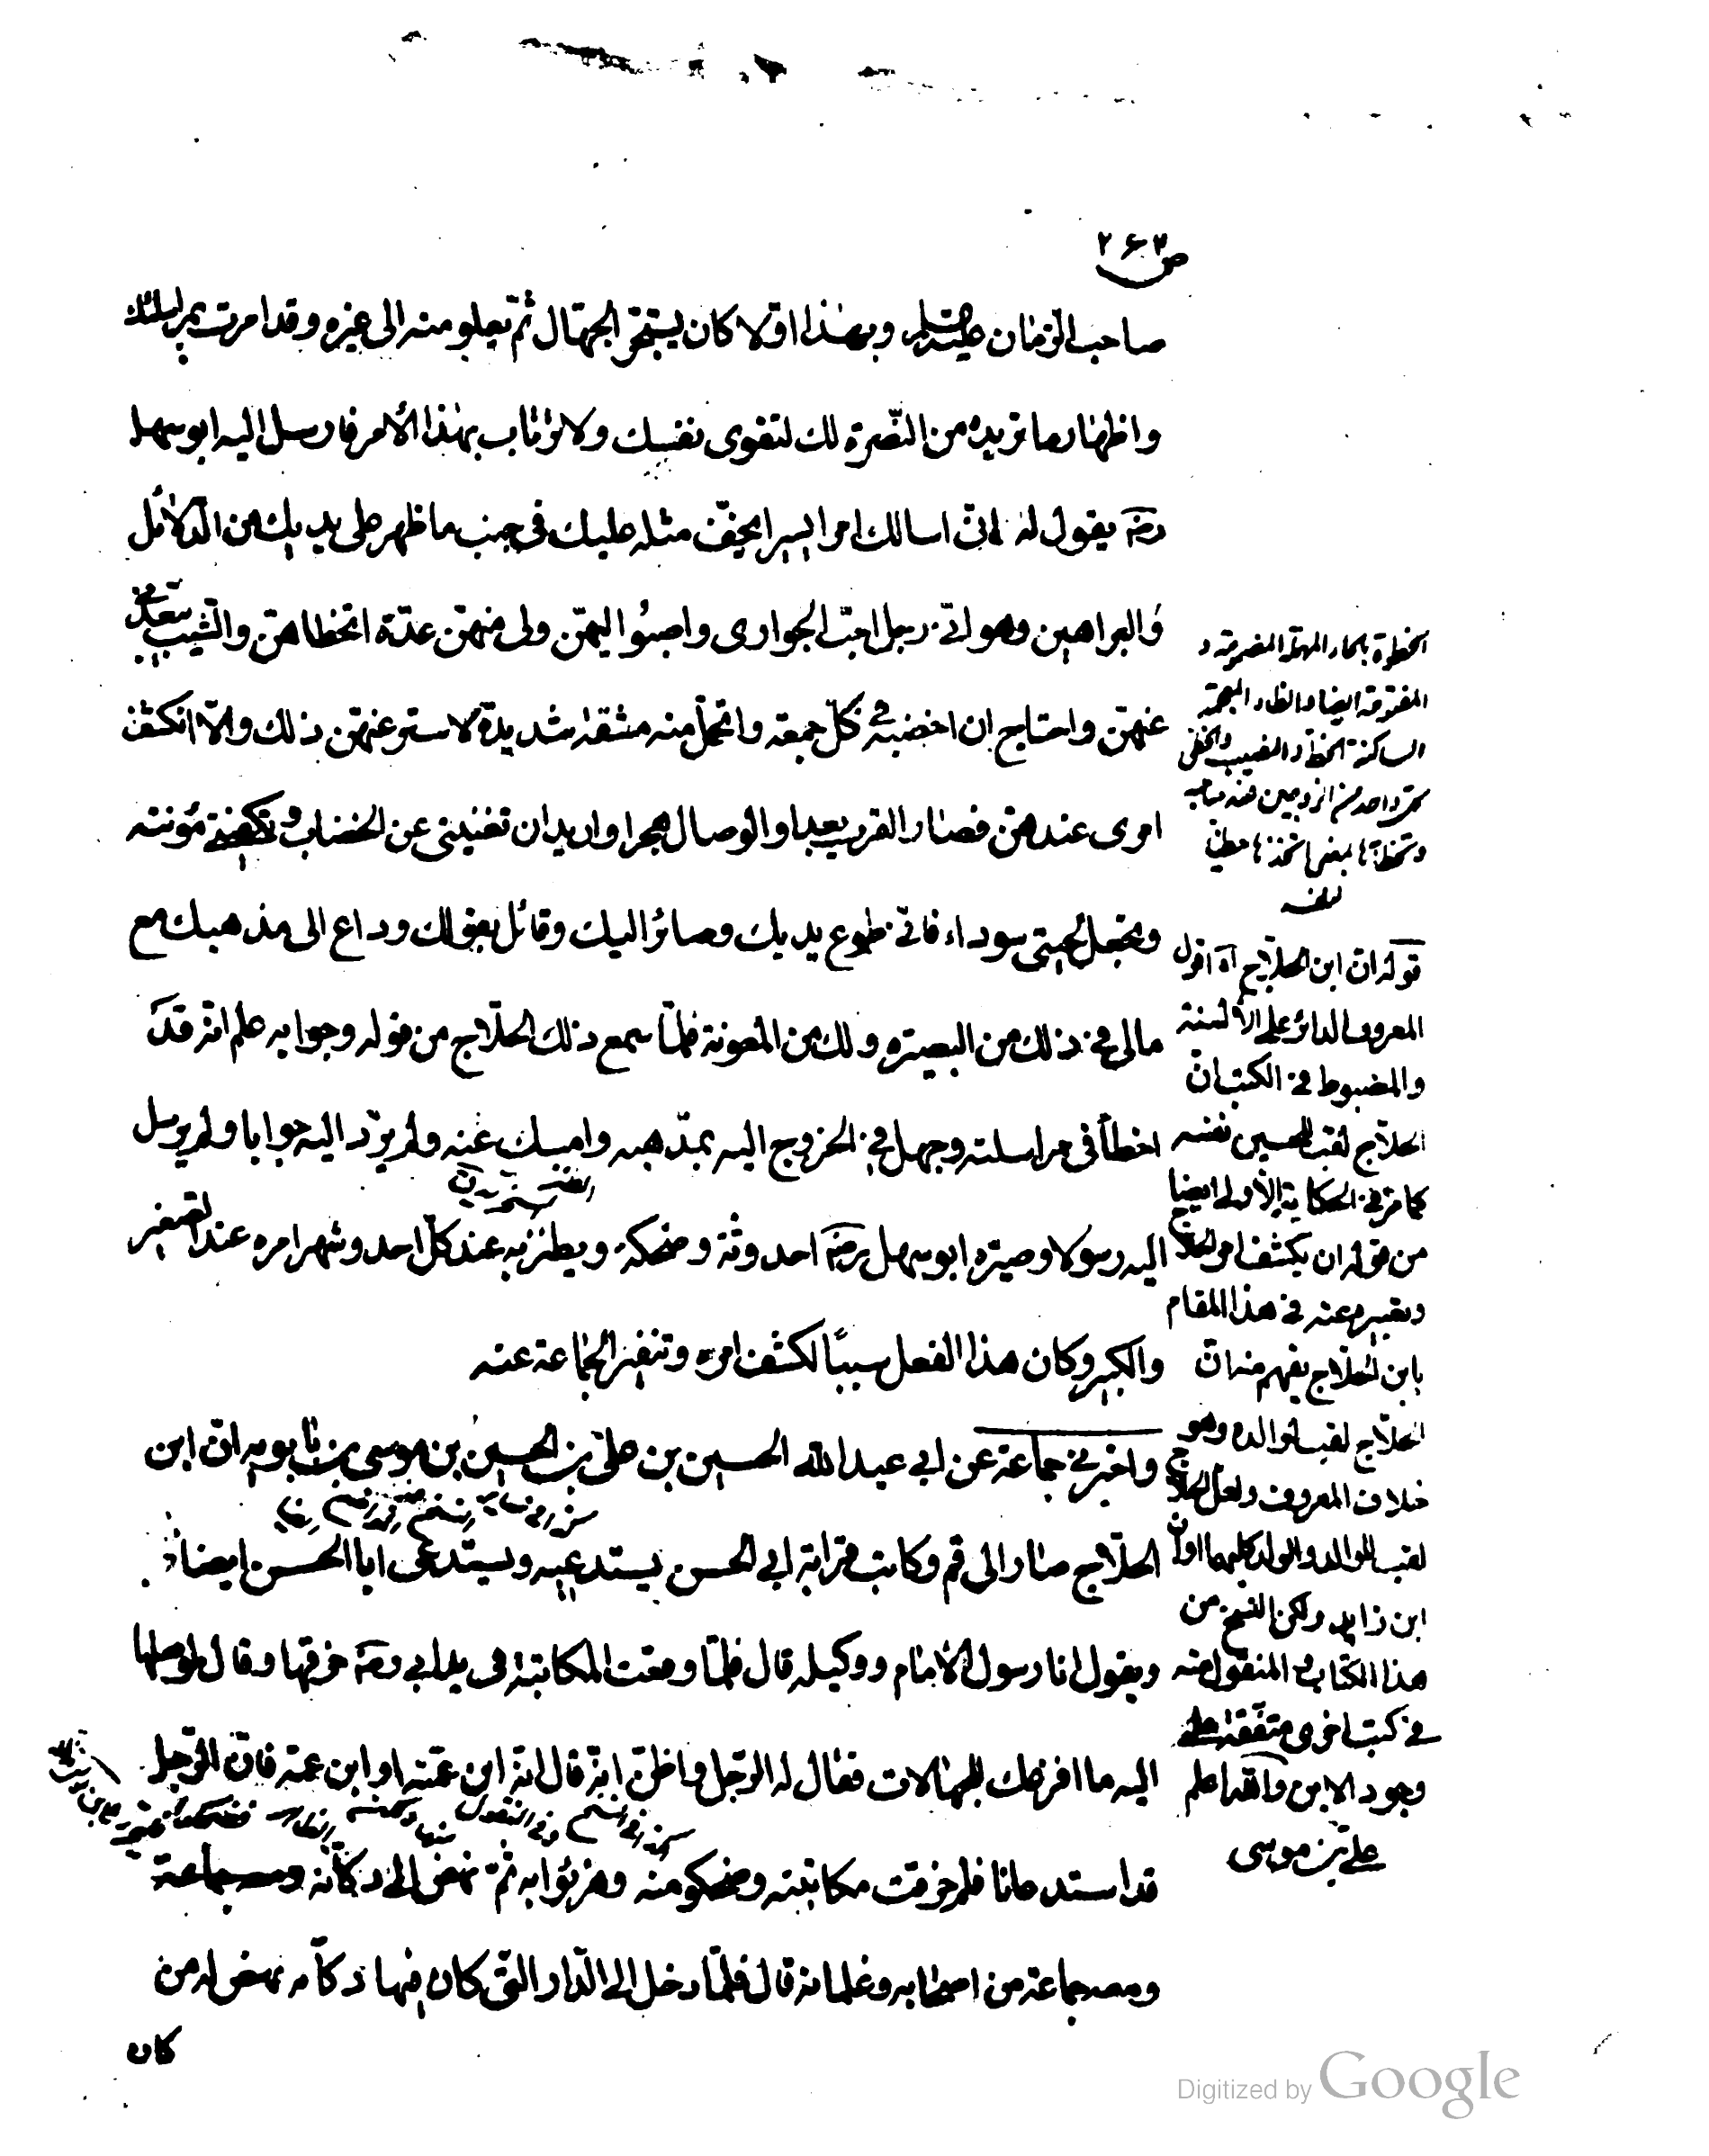 ص ٢٦٣
صاحب الزمان عليه السلم وبهذا اولا كان يستجر الجهال ثم يعلو منه الى غيره وقد امرت بمراسلتك
واظهار ما تريده من النصرة لك لتقوى نفسك ولا ترتاب بهذا الأمر فارسل اليه ابو سهل
رضه يقول له انى اسالك امرا يسيرا يخف مثله عليك فى جنب ما ظهر على يديك من الدلائل
والبراهين وهو انى رجل احب الجوارى واصبو اليهن ولى منهن عدة اتخطاهن والشيب يبعدنى
عنهن واحتاج ان اخضبه فى كل جمعة واتحمل منه مشقة شديدة لاستر عنهن ذلك والا انكشف
امرى عندهن فصار القرب بعدا والوصال هجرا واريد ان تغنينى عن الخضاب وتكفينى مؤنته
وتجعل لحيتى سوداء فانى طوع يديك وصائر اليك وقائل بقولك وداع الى مذهبك مع
مالى فى ذلك من البصيرة ولك من المعونة فلما سمع ذلك الحلاج من قوله وجوابه علم انه قد
اخطأ فى مراسلته وجهل فى الخروج اليه بمذهبه وامسك عنه ولم يرد اليه جوابا ولم يرسل
اليه رسولا وصيره ابو سهل رضه احدوثة وضحكة ويطنز به عند كل احد وشهر امره عند الصغير
والكبير وكان هذا الفعل سببًا لكشف امره وتنفير الجماعة عنه
واخبرنى جماعة عن ابى عبد الله الحسين بن على بن الحسين بن موسى بن بابويه ان ابن
الحلاج صار الى قم وكاتب قرابة ابى الحسن يستدعيه ويستدعى ابا الحسن ايضا
ويقول انا رسول الامام ووكيله قال فلما وقعت المكاتبة فى يد ابى رضه خرقها وقال لموصلها
اليه ما افرغك للجهالات فقال له الرجل واظن انه قال انه ابن عمته او ابن عمه فان الرجل
قد استدعانا فلم خرقت مكاتبته وضحكو منه وهزئوا به ثم نهض الى دكانه ومعه جماعة
ومعه جماعة من اصحابه وغلمانه قال فلما دخل الى الدار التى كان فيها دكانه نهض له من
كان
الخطوة بالحاء المهملة المضمومة و
المفتوحة ايضا والظاء المعجمة
الساكنة
كل واحد من الزوجين
قوله ان ابن الحلاج آه اقول
المعروف الدائر على الألسنة
والمضبوط فى الكتب ان
الحلاج لقب للحسين نفسه
كما مر فى الحكاية الأولى ايضا
من قوله ان يكشف امر الحلاج
وتعبيره عنه فى هذا المقام
بابن الحلاج يفهم منه ان
الحلاج لقب لوالده وهو
خلاف المعروف ولعل الحلاج
لقب للوالد والولد كليهما او ان
ابن زايد ولكن النسخ من
هذا الكتاب والمنقول منه
فى كتب اخرى متفقة على
وجود الابن والله اعلم
على بن موسى
Digitized by Google